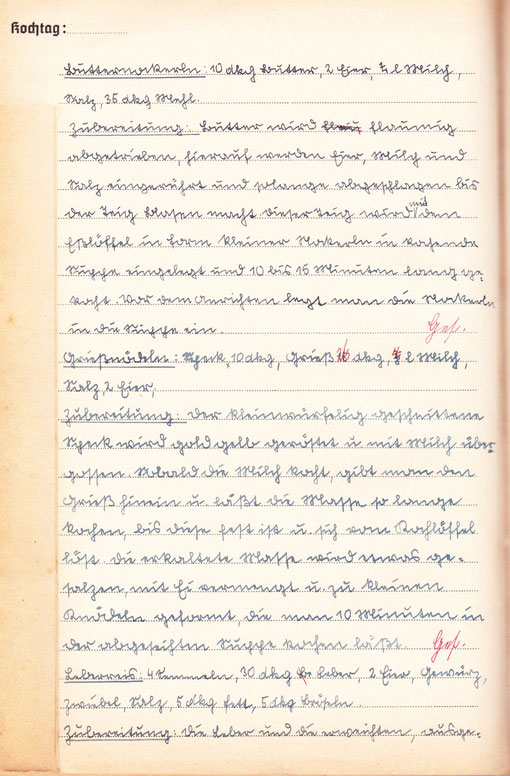 Kochtag:
Butternockerln: 10 dkg Butter, 2 Eier, ¼ l Milch,
Salz, 35 dkg Mehl.
Zubereitung: Butter wird flaumig
abgetrieben, hierauf werden Eier, Milch und
Salz eingerührt und solange abgeschlagen bis
der Teig Blasen macht dieser Teig wird mit dem
Eßlöffel in Form kleiner Nokerln in kochende
Suppe eingelegt und 10 bis 15 Minuten lang ge-
kocht. Vor dem Anrichten legt man die Nokerln
in die Suppe ein. Ges.
Grießknödeln: Speck, 10 dkg, Grieß 26 dkg, l Milch,
Salz, 2 Eier,
Zubereitung: Der kleinwürfelig geschnittene
Speck wird goldgelb geröstet u mit Milch über-
gossen. Sobald die Milch kocht, gibt man den
Grieß hinein u. läßt die Masse so lange
kochen, bis diese fest ist u. sich vom Kochlöffel
löst. die erkaltete Masse wird etwas ge-
salzen, mit Ei vermengt u. zu kleinen
Knödeln geformt, die man 10 Minuten in
der abgeseihten Suppe kochen läßt Ges.
Leberreis: 4 Semmeln, 30 dkg Leber, 2 Eier, Gewürz,
Zwiebel, Salz, 5 dkg Fett, 5 dkg Bröseln.
Zubereitung: die Leber und die erweichten, ausge-